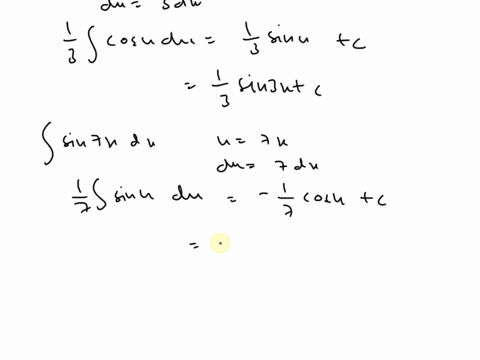 du = 3du
1/3 ∫ cosu du = 1/3 sinu + c
= 1/3 sin3u + c
∫ sin7u du u = 7u
du = 7du
1/7 ∫ sinu du = - 1/7 cosu + c
=